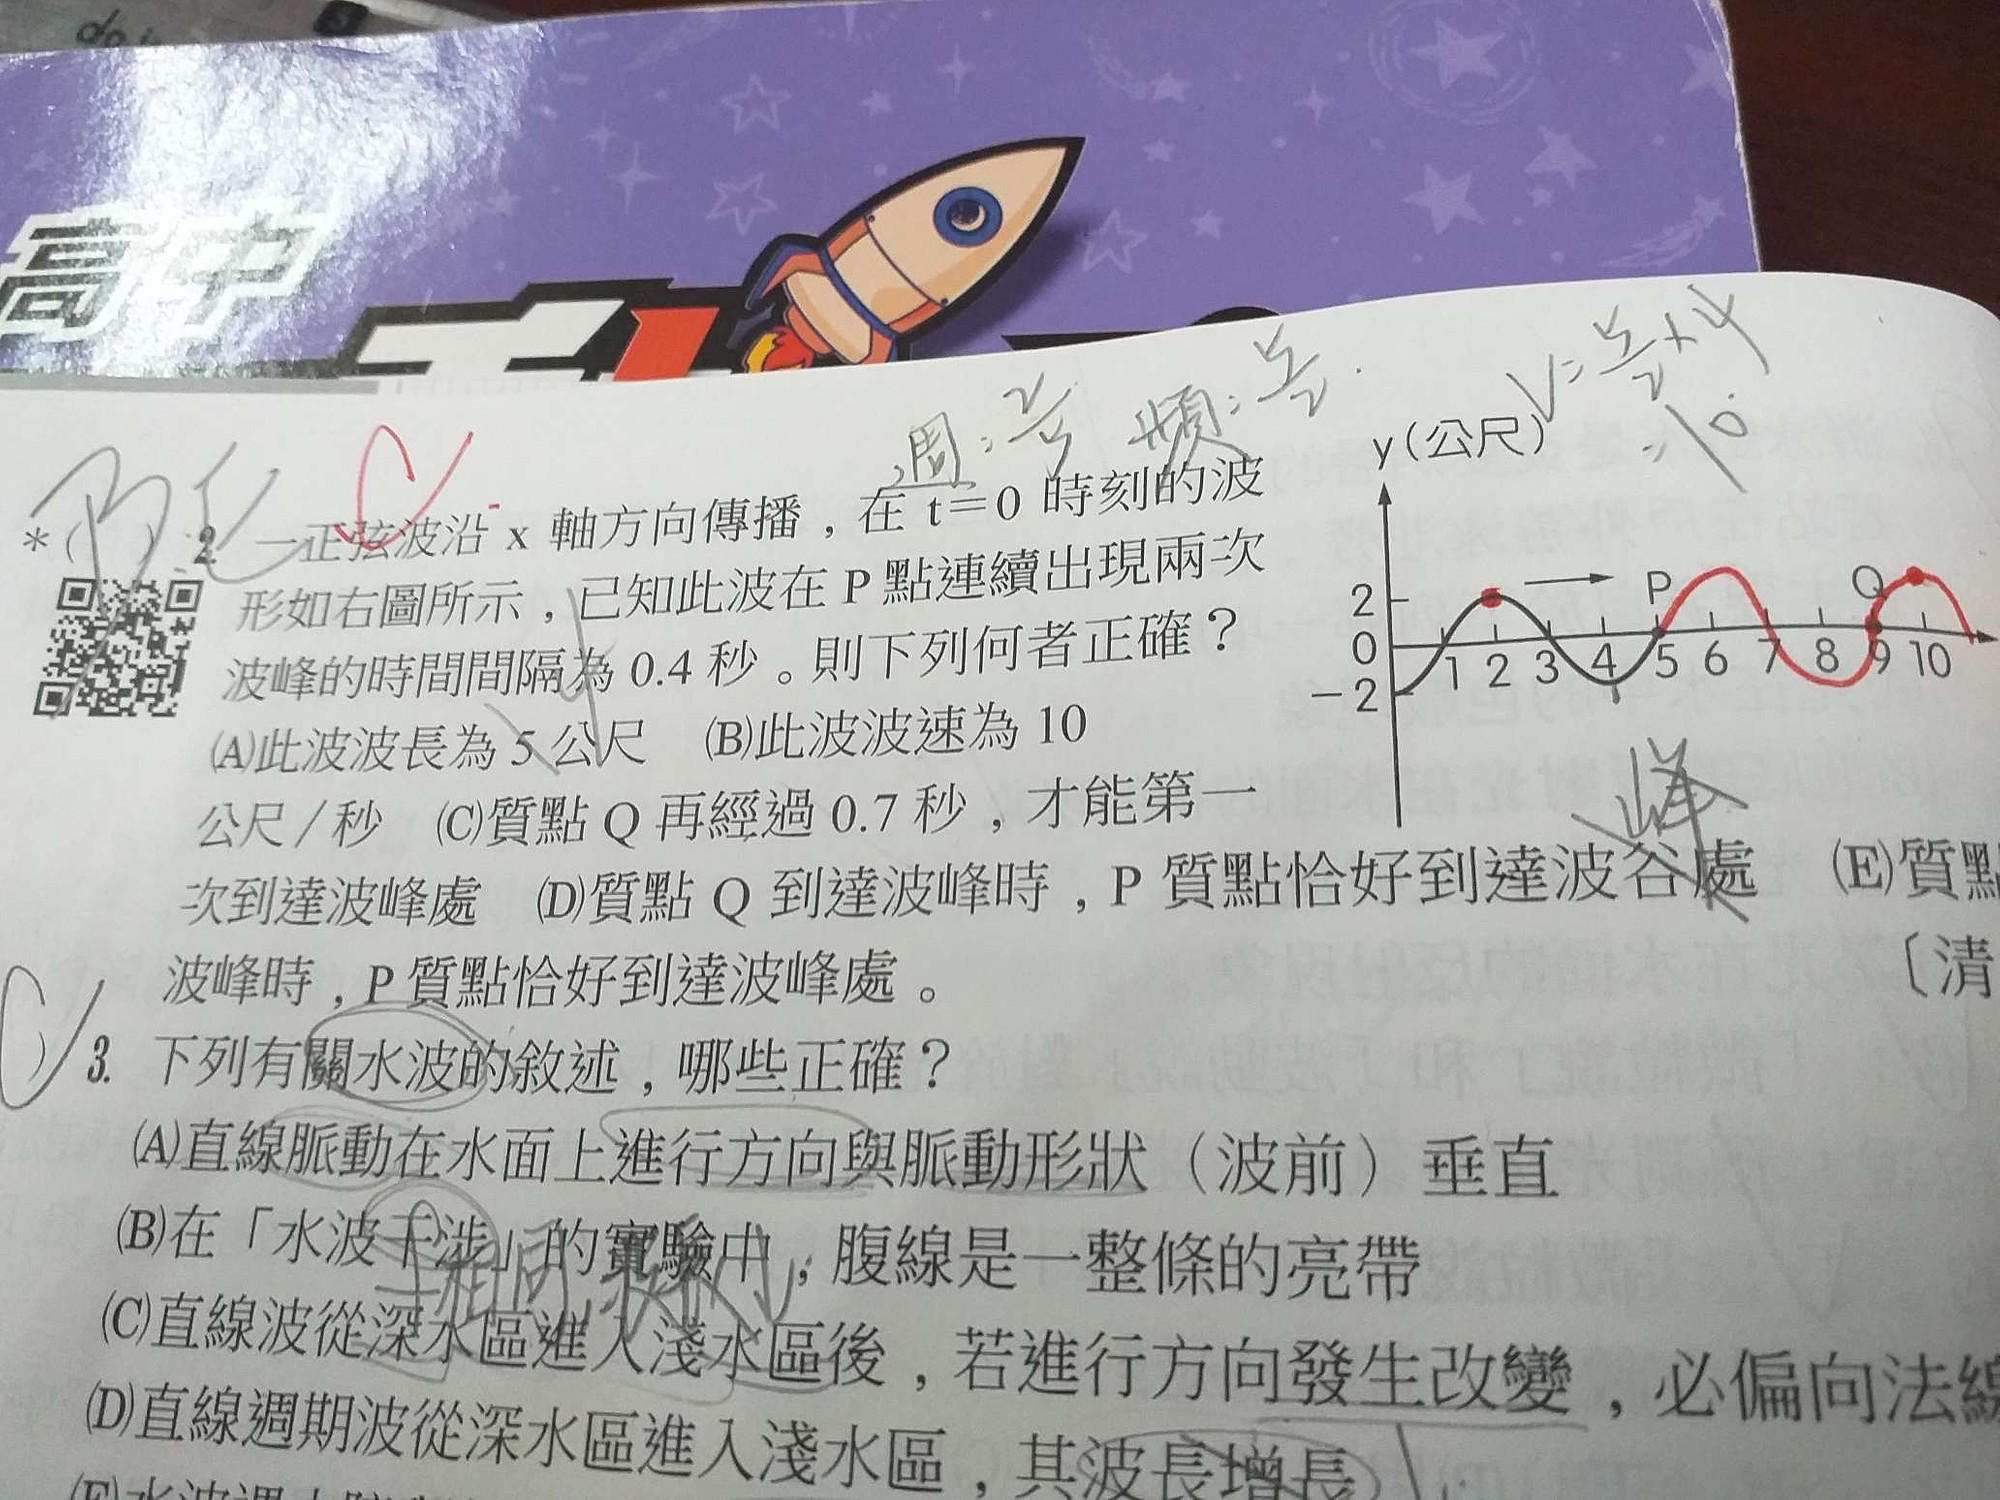 高中
週=2/5 頻=5/2
V=5/2×4
=10
y(公尺)
* ( ) 2. 一正弦波沿 x 軸方向傳播，在 t=0 時刻的波
形如右圖所示，已知此波在 P 點連續出現兩次
波峰的時間間隔為 0.4 秒。則下列何者正確？
(A)此波波長為 5 公尺 (B)此波波速為 10
公尺/秒 (C)質點 Q 再經過 0.7 秒，才能第一
次到達波峰處 (D)質點 Q 到達波峰時，P 質點恰好到達波谷處 (E)質點
波峰時，P 質點恰好到達波峰處。
〔清
2
0
-2
P
Q
1 2 3 4 5 6 7 8 9 10
峰
4
C
) 3. 下列有關水波的敘述，哪些正確？
(A)直線脈動在水面上進行方向與脈動形狀（波前）垂直
(B)在「水波干涉」的實驗中，腹線是一整條的亮帶
(C)直線波從深水區進入淺水區後，若進行方向發生改變，必偏向法線
(D)直線週期波從深水區進入淺水區，其波長增長